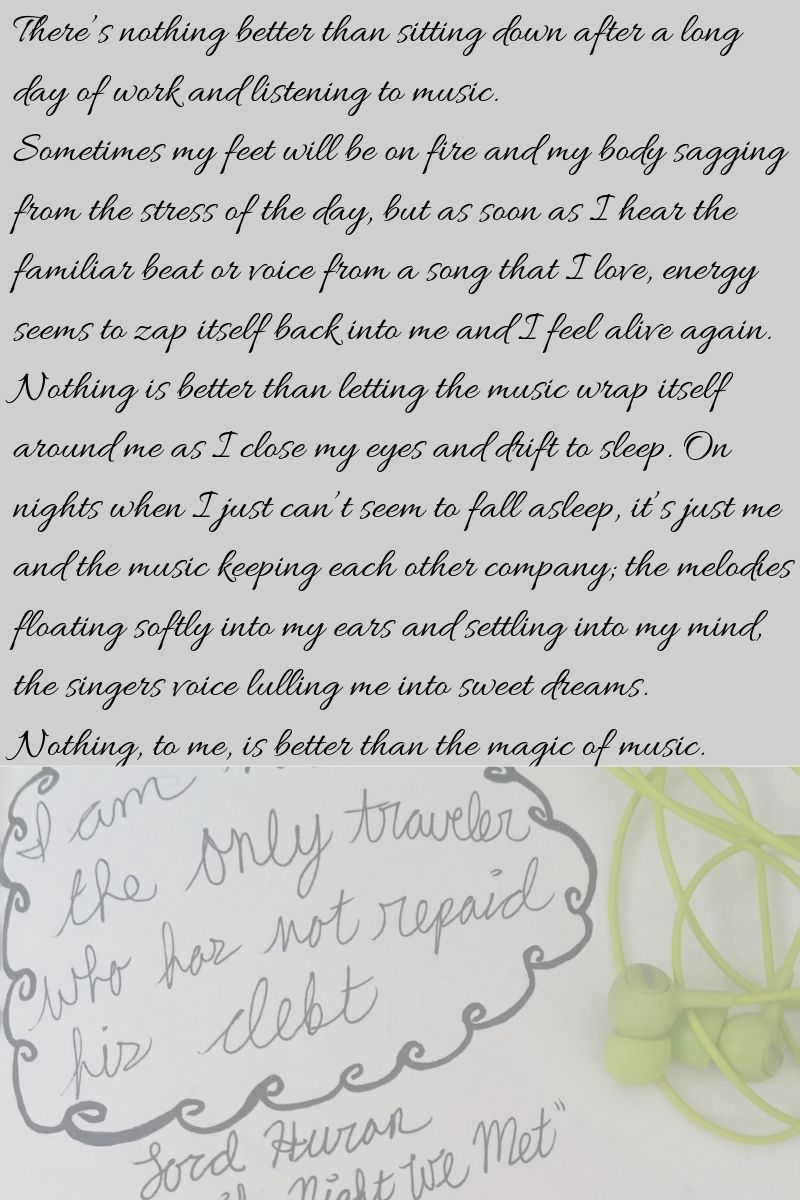 There's nothing better than sitting down after a long
day of work and listening to music.
Sometimes my feet will be on fire and my body sagging
from the stress of the day, but as soon as I hear the
familiar beat or voice from a song that I love, energy
seems to zap itself back into me and I feel alive again.
Nothing is better than letting the music wrap itself
around me as I close my eyes and drift to sleep. On
nights when I just can't seem to fall asleep, it's just me
and the music keeping each other company; the melodies
floating softly into my ears and settling into my mind,
the singers voice lulling me into sweet dreams.
Nothing, to me, is better than the magic of music.
I am
the only traveler
who has not repaid
his debt
Lord Huron
Night We Met"